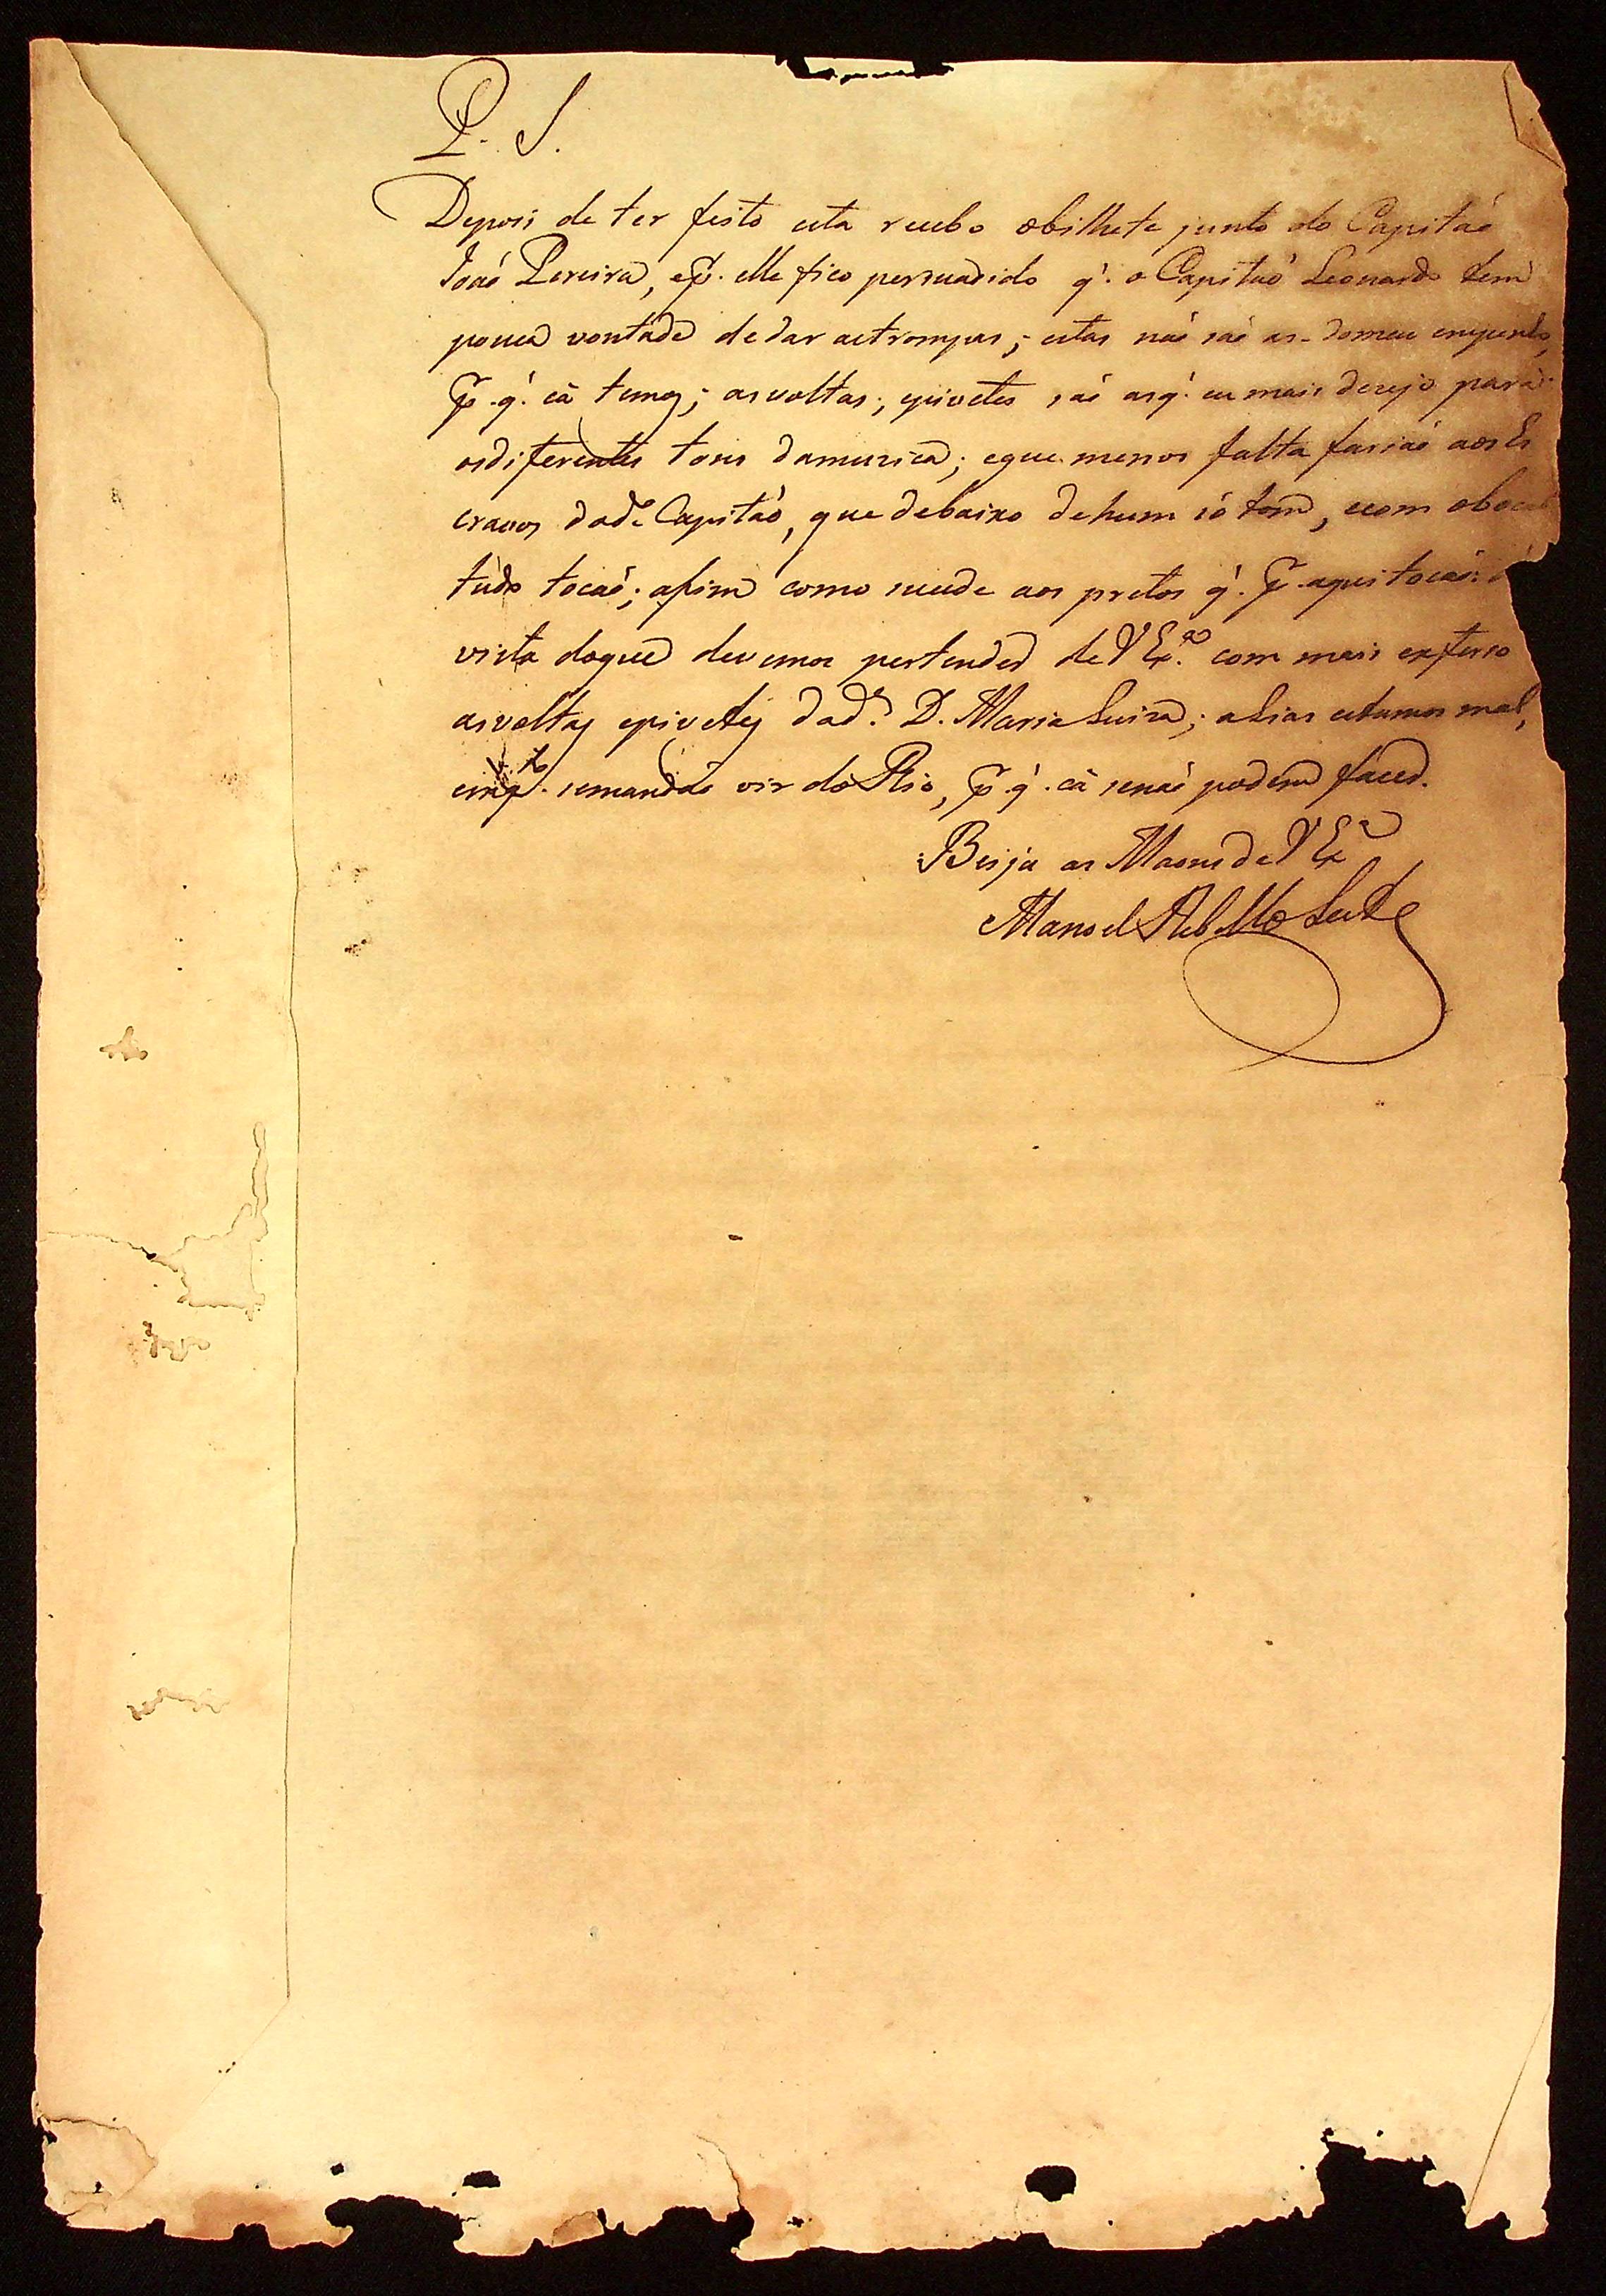 P. S.
Depois de ter feito esta recebo obilhete junto do Capitaõ
Joaõ Pereira, ep. elle fico persuadido q. o Capitaõ Leonardo tem
pouca vontade dedar astrompas; estas naõ saõ as- domeu empenho,
p.q. cá temos; asvoltas, epivetes saõ asq. eu mais dezejo para
osdiferentes tons damuzica; eque menos falta fariaõ aos Es
cravos dod.o Capitaõ, que debaixo dehum só tom, ecom obocal
tudo tocaõ; assim como sucede aos pretos q. p. aqui tocaõ: á
vista doque devemos pertender de V Ex.a com mais exforso
asvoltas epivetes dad.a D. Maria Luiza; alias estamos mal,
emq.to semandaõ vir do Rio, p.q. cá senaõ podem fazer.
Beija as Maons de V Ex.a
Manoel Rebello Leite